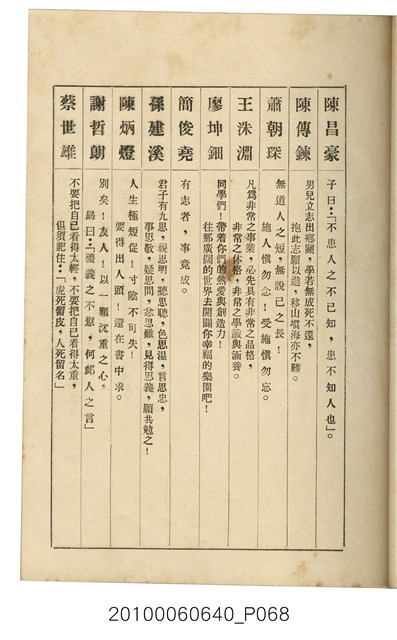 陳昌豪
子曰：「不患人之不已知，患不知人也」。
陳傳鍊
男兒立志出鄉關，學若無成死不還，
抱此志願以進，移山填海亦不難。
蕭朝琛
無道人之短，無說己之長！
施人慎勿念！受施慎勿忘。
王洙淵
凡為非常之事業，必先具有非常之品格，
非常之体格，非常之學識與涵養。
廖坤鈿
同學們！帶着你們的熱愛與創造力！
往那廣闊的世界去開闢你幸福的樂園吧！
簡俊堯
有志者，事竟成。
孫建溪
君子有九思，視思明，聽思聰，色思温，言思忠，
事思敬，疑思問，忿思難，見得思義，願共勉之！
陳炳燈
人生極短促！寸陰不可失！
要得出人頭！還在書中求。
謝哲朗
別矣！友人！以一顆沉重之心，
勗曰：「禮義之不愆，何卹人之言」
蔡世雄
不要把自己看得太輕，不要把自己看得太重，
但須記住：「虎死留皮，人死留名」
20100060640_P068